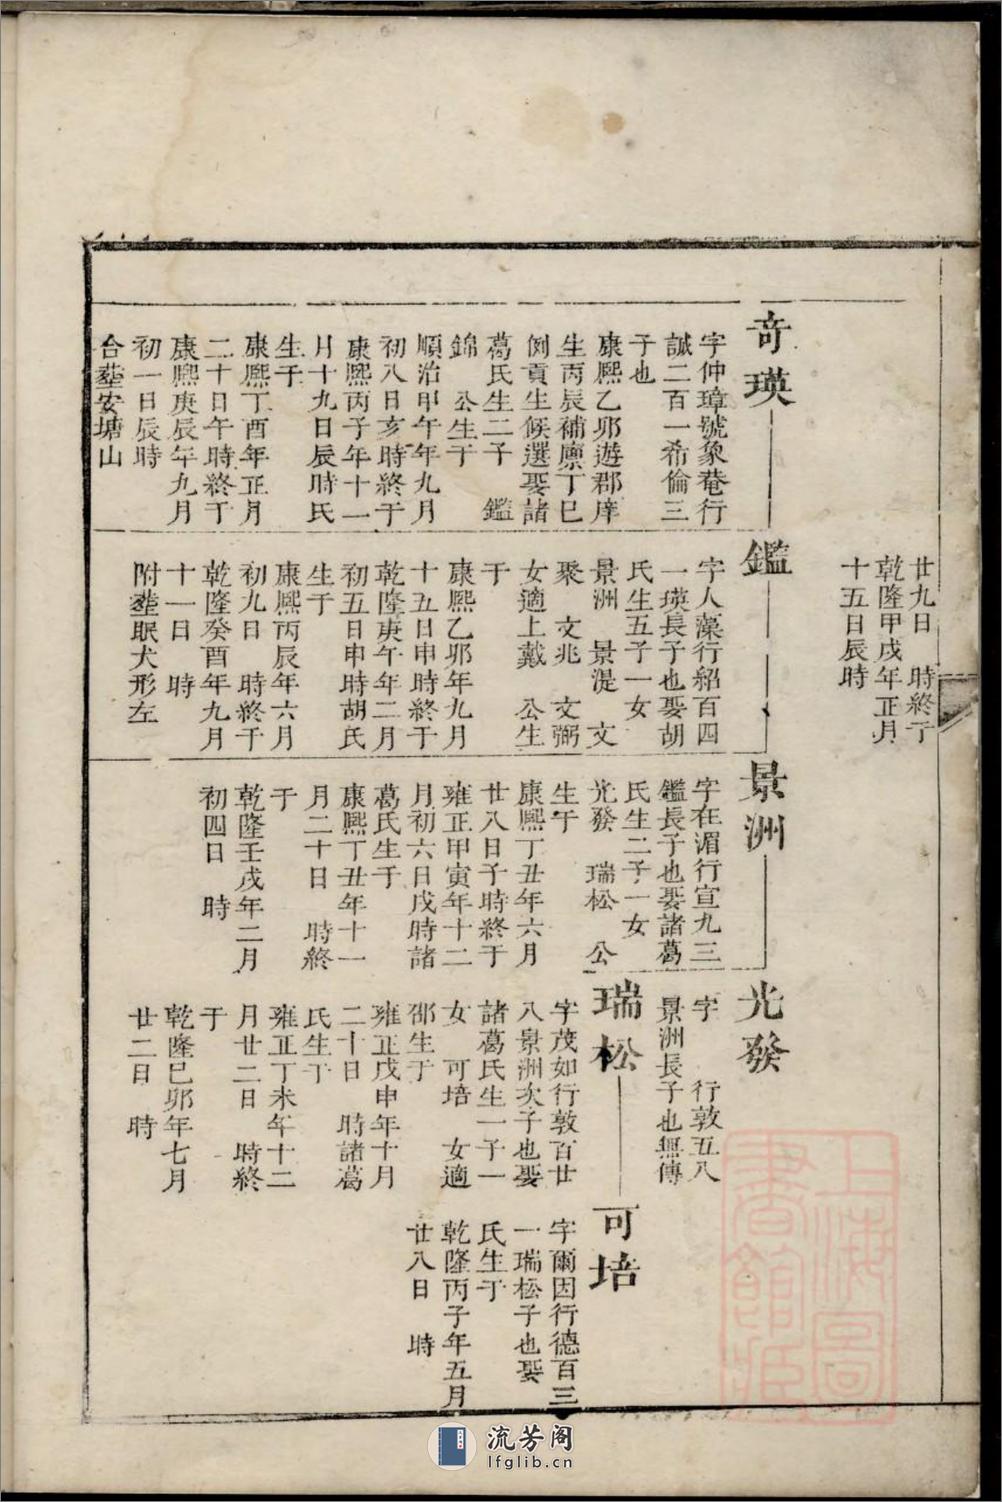 廿九日　時終于
乾隆甲戌年正月
十五日辰時
奇瑛
字仲璋號象菴行
誠二百一希倫三
子也
康熙乙卯遊郡庠
生丙辰補廩丁巳
例貢生候選娶諸
葛氏生二子　鑑
錦　公生于
順治甲午年九月
初八日亥時終于
康熙丙子年十一
月十九日辰時氏
生于
康熙丁酉年正月
二十日午時終于
康熙庚辰年九月
初一日辰時
合塟安塘山
鑑
字人藻行紹百四
一瑛長子也娶胡
氏生五子一女
景洲　景湜　文
聚　文兆　文弼
女適上戴　公生
于
康熙乙卯年九月
十五日申時終于
乾隆庚午年二月
初五日申時胡氏
生于
康熙丙辰年六月
初九日　時終于
乾隆癸酉年九月
十一日　時
附塟眠犬形左
景洲
字在湄行宣九三
鑑長子也娶諸葛
氏生二子一女
光發　瑞松　公
生于
康熙丁丑年六月
廿八日子時終于
雍正甲寅年十二
月初六日戌時諸
葛氏生于
康熙丁丑年十一
月二十日　時終
于
乾隆壬戌年二月
初四日　時
光發
字　　行敦五八
景洲長子也無傳
瑞松
字茂如行敦百廿
八景洲次子也娶
諸葛氏生一子一
女　可培　女適
邵生于
雍正戊申年十月
二十日　時諸葛
氏生于
雍正丁未年十二
月廿二日　時終
于
乾隆己卯年七月
廿二日　時
可培
字爾因行德百三
一瑞松子也娶
氏生于
乾隆丙子年五月
廿八日　時
上海圖
書館藏
流芳阁
lfglib.cn